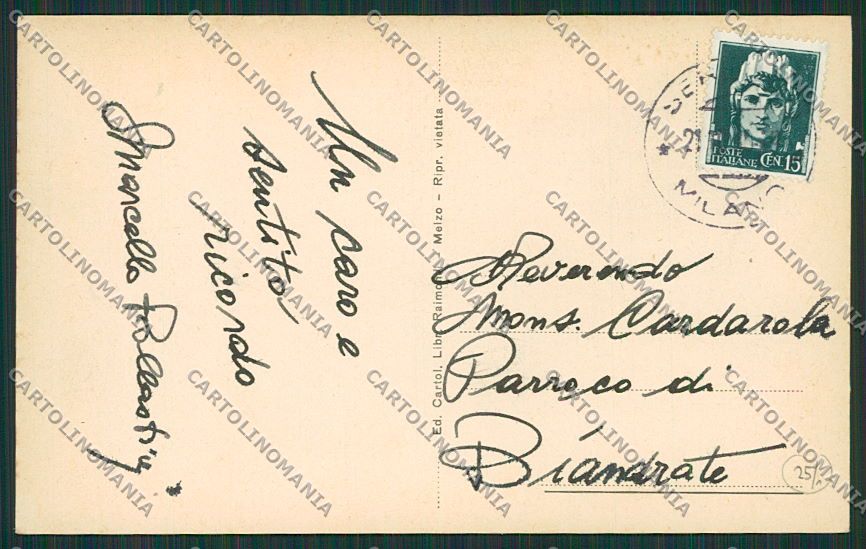 Un caro e
sentito
ricordo
Marcello
Ed. Cartol. Libr. Raimondi Melzo – Ripr. vietata
POSTE
ITALIANE CEN. 15
MILANO
Reverendo
Mons. Cardarola
Parroco di
Biandrate
25
CARTOLINOMANIA